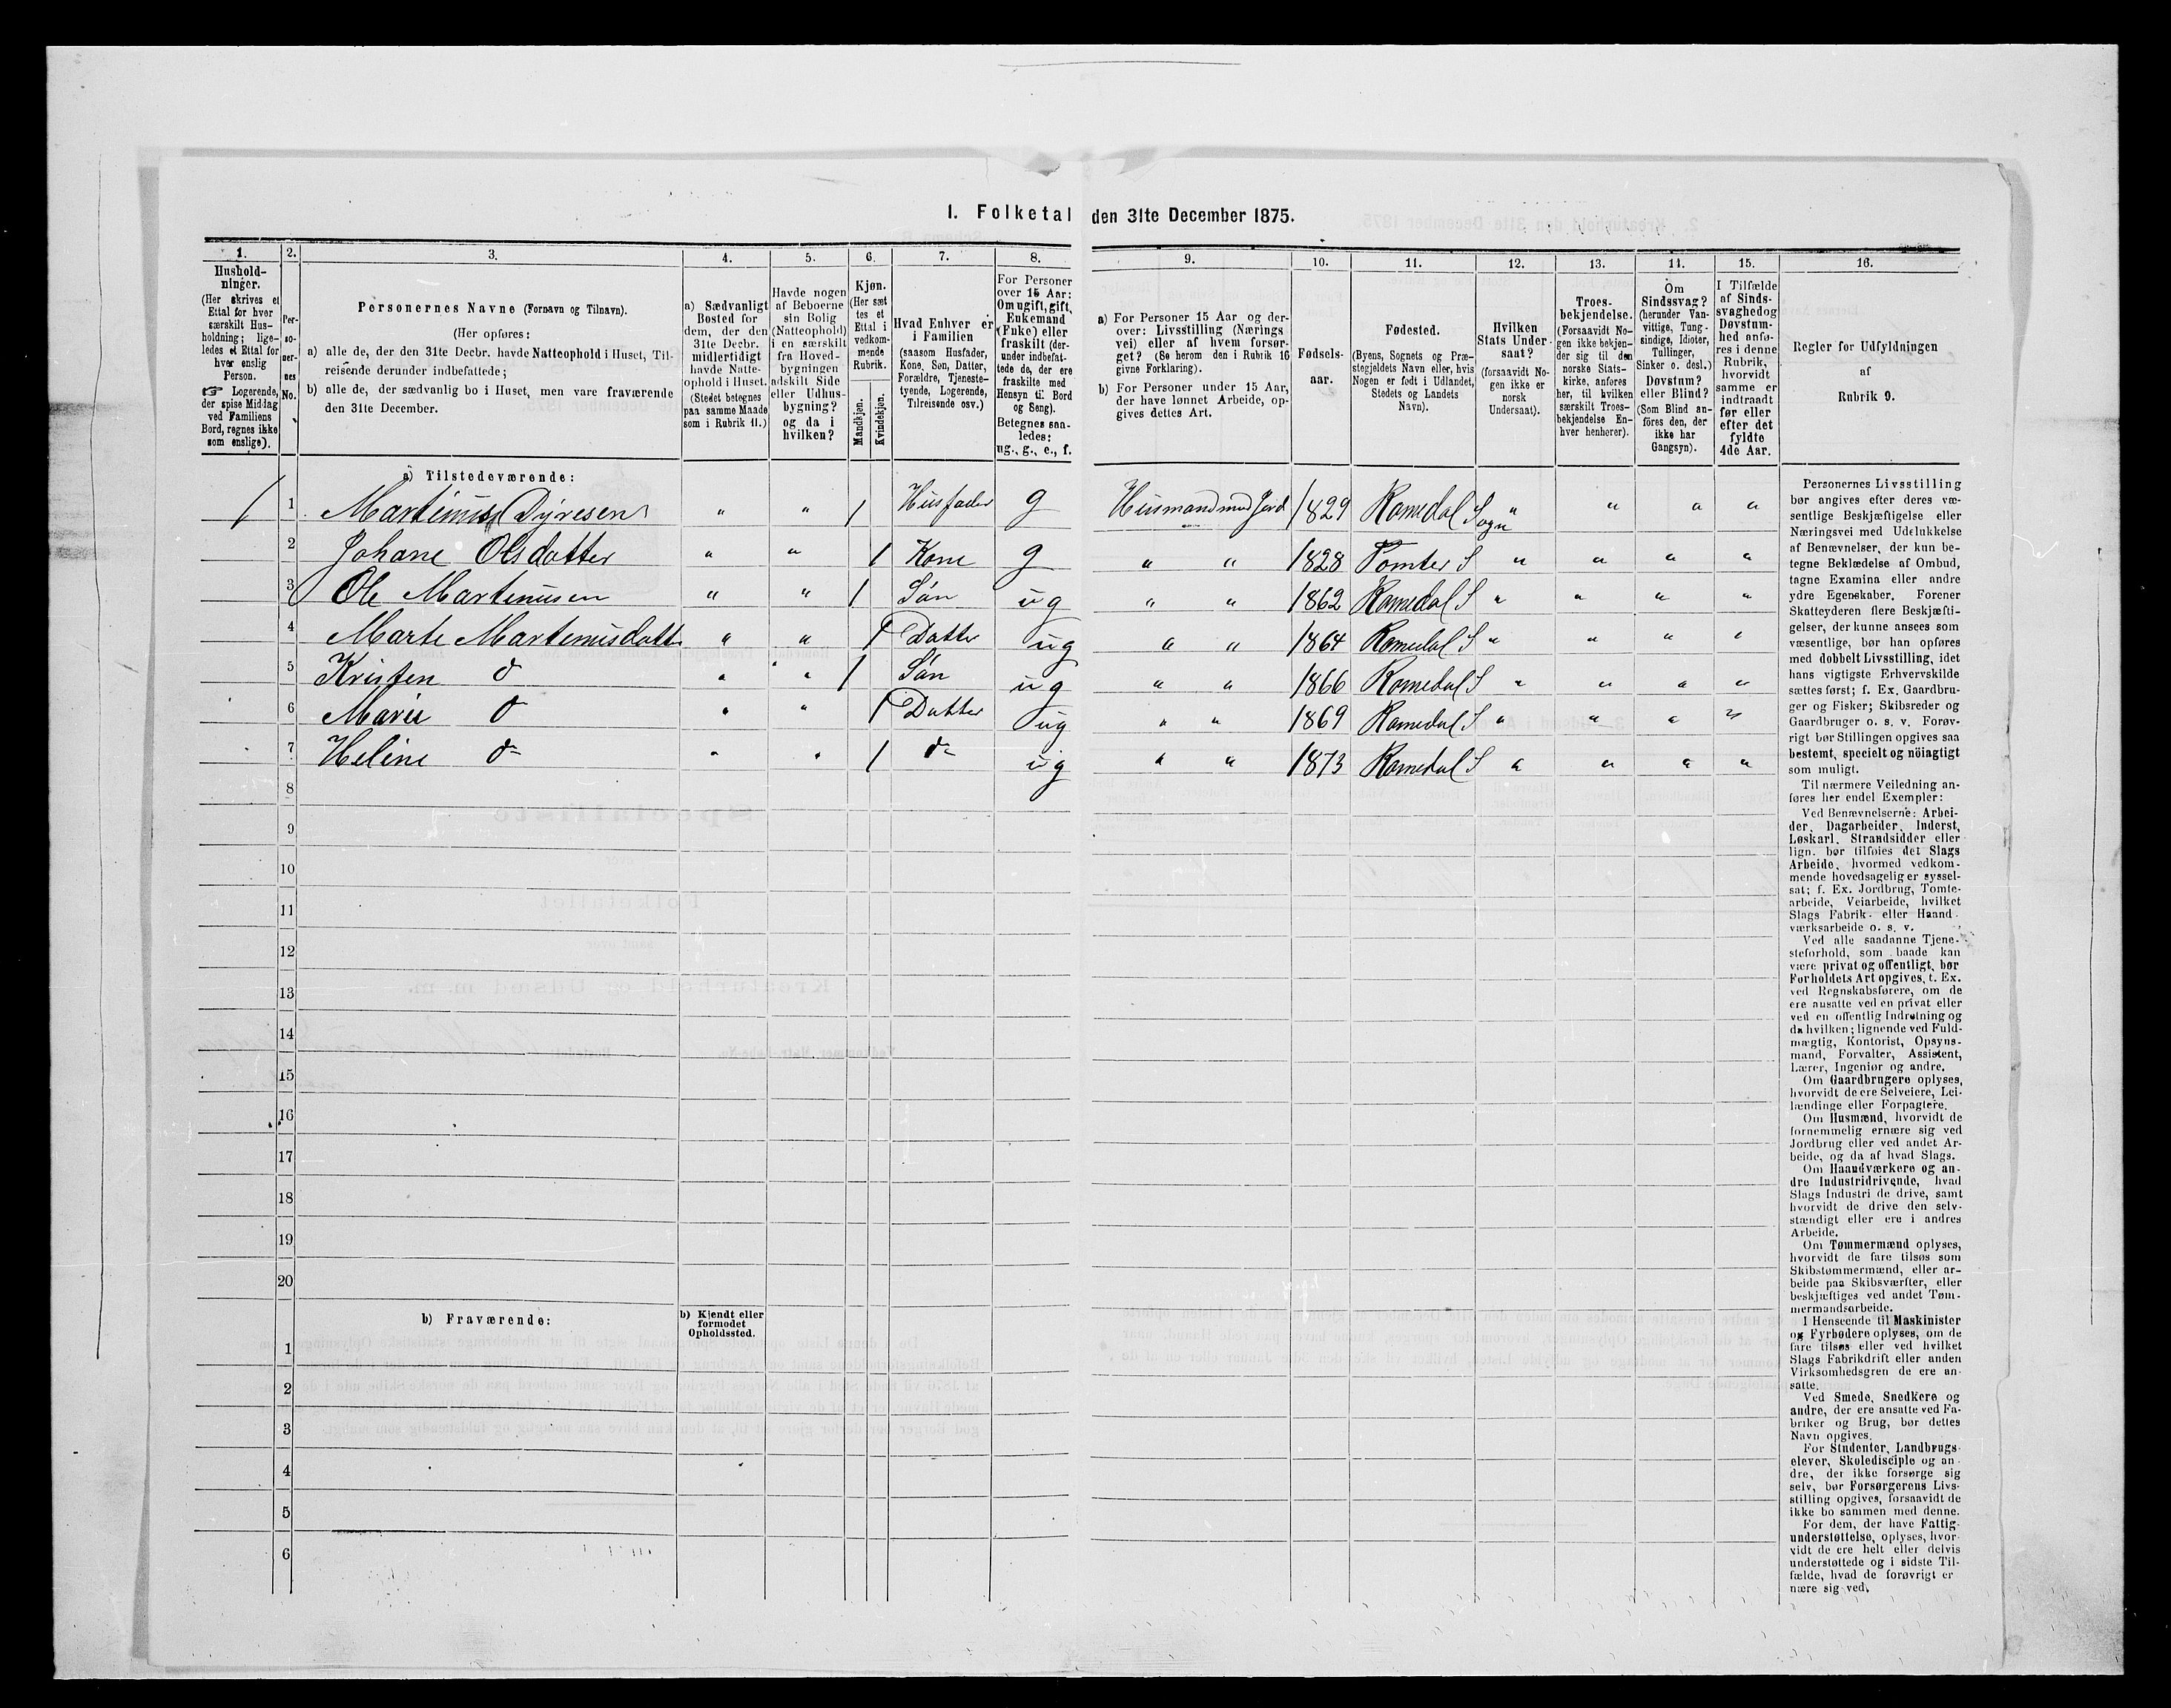 1. Folketal den 31te December 1875.
1. 2. 3. 4. 5. 6. 7. 8. 9. 10. 11. 12. 13. 14. 15. 16.
Hushold-
ninger.
(Her skrives et
Ettal for hver
særskilt Hus-
holdning; lige-
ledes et Ettal for
hver enslig
Person.
☞ Logerende,
der spise Middag
ved Familiens
Bord, regnes ikke
som enslige).
Per-
so-
ner-
nes
No.
Personernes Navne (Fornavn og Tilnavn).
(Her opføres:
a) alle de, der den 31te Decbr. havde Natteophold i Huset, Til-
reisende derunder indbefattede;
b) alle de, der sædvanlig bo i Huset, men vare fraværende
den 31te December.
a) Sædvanligt
Bosted for
dem, der den
31te Decbr.
midlertidigt
havde Natte-
ophold i Huset.
(Stedet betegnes
paa samme Maade
som i Rubrik 11.)
Havde nogen
af Beboerne
sin Bolig
(Natteophold)
i en særskilt
fra Hoved-
bygningen
adskilt Side
eller Udhus-
bygning?
og da i
hvilken?
Kjøn.
(Her sæt
tes et
Ettal i
vedkom-
mende
Rubrik.
Mandkjøn.
Kvindekjøn.
Hvad Enhver er
i Familien
(saasom Husfader,
Kone, Søn, Datter,
Forældre, Tjeneste-
tyende, Logerende,
Tilreisende osv.)
For Personer
over 15 Aar:
Om ugift, gift,
Enkemand
(Enke) eller
fraskilt (der-
under indbefat-
tede de, der ere
fraskilte med
Hensyn til Bord
og Seng).
Betegnes saa-
ledes:
ug., g., e., f.
a) For Personer 15 Aar og der-
over: Livsstilling (Nærings
vei) eller af hvem forsør-
get? (Se herom den i Rubrik 16
givne Forklaring).
b) For Personer under 15 Aar,
der have lønnet Arbeide, op-
gives dettes Art.
Fødsels-
aar.
Fødested.
(Byens, Sognets og Præ-
stegjeldets Navn eller, hvis
Nogen er født i Udlandet,
Stedets og Landets
Navn).
Hvilken
Stats Under-
saat?
(forsaavidt No-
gen ikke er
norsk
Undersaat).
Troes-
bekjendelse.
(Forsaavidt No-
gen ikke bekjen-
der sig til den
norske Stats-
kirke, anføres
her, til hvilken
særskilt Troes-
bekjendelse En-
hver henhører).
Om
Sindssvag?
(herunder Van-
vittige, Tung-
sindige, Idioter,
Tullinger,
Sinker o. desl.)
Døvstum?
eller Blind?
(Som Blind an-
føres den, der
ikke har
Gangsyn).
I Tilfælde
af Sinds-
svaghed og
Døvstum-
hed anfø-
res i denne
Rubrik,
hvorvidt
samme er
indtraadt
før eller
efter det
fyldte
4de Aar.
Regler for Udfyldningen
af
Rubrik 9.
a) Tilstedeværende:
1 1 Martinus Dyresen " " 1 Husfader g Husmand med Jord 1829 Romedal Sogn " " " "
2 Johane Olsdatter " " 1 Kone g " " 1828 Tomter S " " " "
3 Ole Martinusen " " 1 Søn ug " " 1862 Romedal S " " " "
4 Marte Martinusdatter " " 1 Datter ug " " 1864 Romedal S " " " "
5 Kristen do " " 1 Søn ug " " 1866 Romedal S " " " "
6 Marie do " " 1 Datter ug " " 1869 Romedal S " " " "
7 Heline do " " 1 do ug " " 1873 Romedal S " " " "
8
9
10
11
12
13
14
15
16
17
18
19
20
b) Fraværende:
b) Kjendt eller
formodet
Opholdssted.
1
2
3
4
5
6
Personernes Livsstilling
bør angives efter deres væ-
sentlige Beskjæftigelse eller
Næringsvei med Udelukkelse
af Benævnelser, der kun be-
tegne Beklædelse af Ombud,
tagne Examina eller andre
ydre Egenskaber. Forener
Skatteyderen flere Beskjæfti-
gelser, der kunne ansees som
væsentlige, bør han opføres
med dobbelt Livsstilling, idet
hans vigtigste Erhvervskilde
sættes først; f. Ex. Gaardbru-
ger og Fisker; Skibsreder og
Gaardbruger o. s. v. Forøv-
rigt bør Stillingen opgives saa
bestemt, specielt og nöiagtigt
som muligt.
Til nærmere Veiledning an-
føres her endel Exempler:
Ved Benævnelserne: Arbei-
der, Dagarbeider, Inderst,
Løskarl, Strandsidder eller
lign. bør tilføies det Slags
Arbeide, hvormed vedkom-
mende hovedsagelig er syssel-
sat; f. Ex. Jordbrug, Tomte-
arbeide, Veiarbeide, hvilket
Slags Fabrik- eller Haand-
værksarbeide o. s. v.
Ved alle saadanne Tjene-
steforhold, som baade kan
være privat og offentligt, bør
Forholdets Art opgives, t. Ex.
ved Regnskabsførere, om de
ere ansatte ved en privat eller
ved en offentlig Indretning og
da hvilken; lignende ved Fuld-
mægtig, Kontorist, Opsyns-
mand, Forvalter, Assistent,
Lærer, Ingeniør og andre.
Om Gaardbrugere oplyses,
hvorvidt de ere Selveiere, Lei-
lændinge eller Forpagtere.
Om Husmænd, hvorvidt de
fornemmelig ernære sig ved
Jordbrug eller ved andet Ar-
beide, og da af hvad Slags.
Om Haandværkere og an-
dre Industridrivende, hvad
Slags Industri de drive, samt
hvorvidt de drive den selv-
stændigt eller ere i andres
Arbeide.
Om Tømmermænd oplyses,
hvorvidt de fare tilsøs som
Skibstømmermænd, eller ar-
beide paa Skibsværfter, eller
beskjæftiges ved andet Tøm-
mermandsarbeide.
I Henseende til Maskinister
og Fyrbødere oplyses, om de
fare tilsøs eller ved hvilket
Slags Fabrikdrift eller anden
Virksomhedsgren de ere an-
satte.
Ved Smede, Snedkere og
andre, der ere ansatte ved Fa-
briker og Brug, bør dettes
Navn opgives.
For Studenter, Landbrugs-
elever, Skoledisciple og an-
dre, der ikke forsørge sig
selv, bør Forsørgerens Livs-
stilling opgives, forsaavidt de
ikke bo sammen med denne.
For dem, der have Fattig-
understøttelse, oplyses, hvor-
vidt de ere helt eller delvis
understøttede og i sidste Til-
fælde, hvad de forøvrigt er-
nære sig ved.